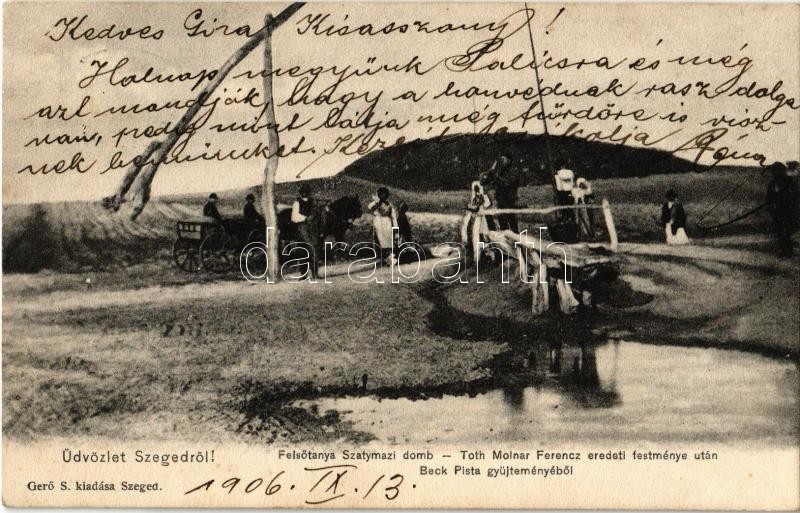 Kedves Gira Kisasszony!
Holnap megyünk Palicsra és még
azt mondják, hogy a honvédnak rasz dolga
van, pedig mint látja még fürdőre is visz-
nek bennünket. Kezét
Róna
darabanth
Üdvözlet Szegedről!
Felsőtanya Szatymazi domb — Toth Molnar Ferencz eredeti festménye után
Beck Pista gyüjteményéből
Gerő S. kiadása Szeged.
1906. IX. 13.